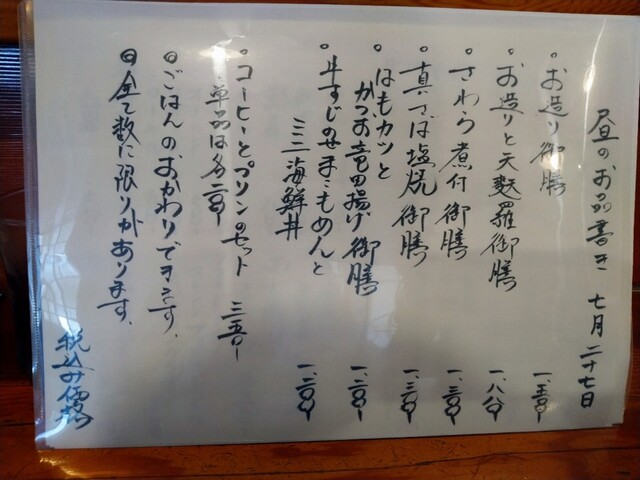 昼のお品書き 七月二十七日
○お造り御膳 一、五〇〇
○お造りと天麩羅御膳 一、八〇〇
○さわら煮付御膳 一、三〇〇
○真さば塩焼御膳 一、三〇〇
○はもカツと
かつお竜田揚げ御膳 一、二〇〇
○牛すじのせ
ミニ海鮮丼 一、二〇〇
○コーヒーとプリンのセット 三五〇
単品は各二〇〇
◎ごはんのおかわりできます。
◎全て数に限りがあります。
税込み価格